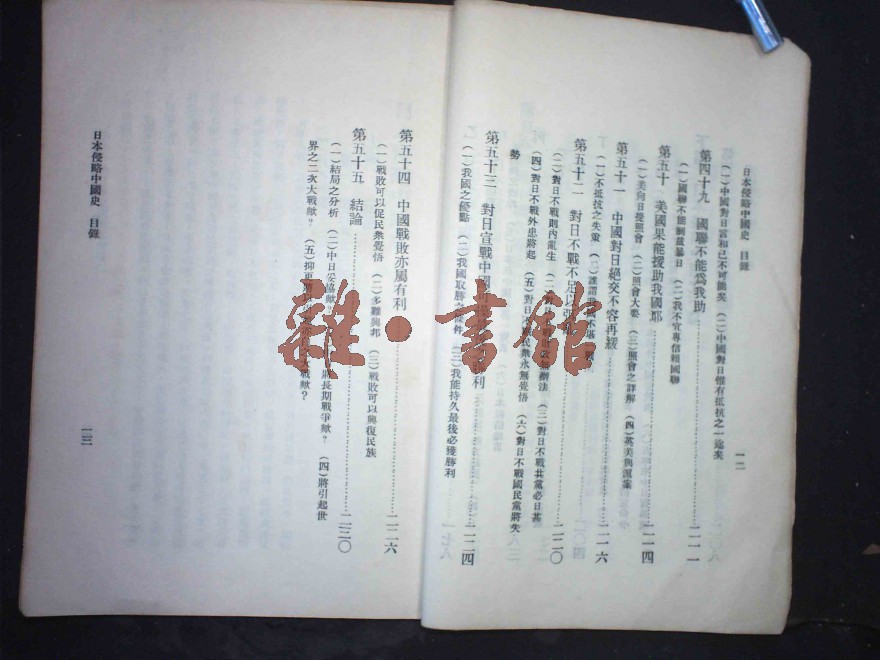 日本侵略中國史 目錄
一二
(一)中國對日言和已不可能矣 (二)中國對日惟有抵抗之一途矣
第四十九 國聯不能爲我助……二一一
(一)國聯不能制裁暴日 (二)我不宜專信賴國聯
第五十 美國果能援助我國耶……二一四
(一)美向日提照會 (二)照會大要 (三)照會之詳解 (四)英美與滬案
第五十一 中國對日絕交不容再緩……二一六
(一)不抵抗之失策 (二)誰謂我國不堪一戰
第五十二 對日不戰不足以……二二〇
(一)對日不戰則內亂生 (二) 辦法 (三)對日不戰共黨必日甚
(四)對日不戰外患將起 (五)對日不 民衆永無覺悟 (六)對日不戰國民黨將失
勢
第五十三 對日宣戰中國可 勝利……二二四
(一)我國之優點 (二)我國取勝之條件 (三)我能持久最後必獲勝利
第五十四 中國戰敗亦屬有利……二二六
(一)戰敗可以促民衆覺悟 (二)多難興邦 (三)戰敗可以興復民族
第五十五 結論……二三〇
(一)結局之分析 (二)中日妥協歟? 將長期戰爭歟? (四)將引起世
界之二次大戰歟? (五)抑更 大戰歟?
日本侵略中國史 目錄
一三
雜·書館